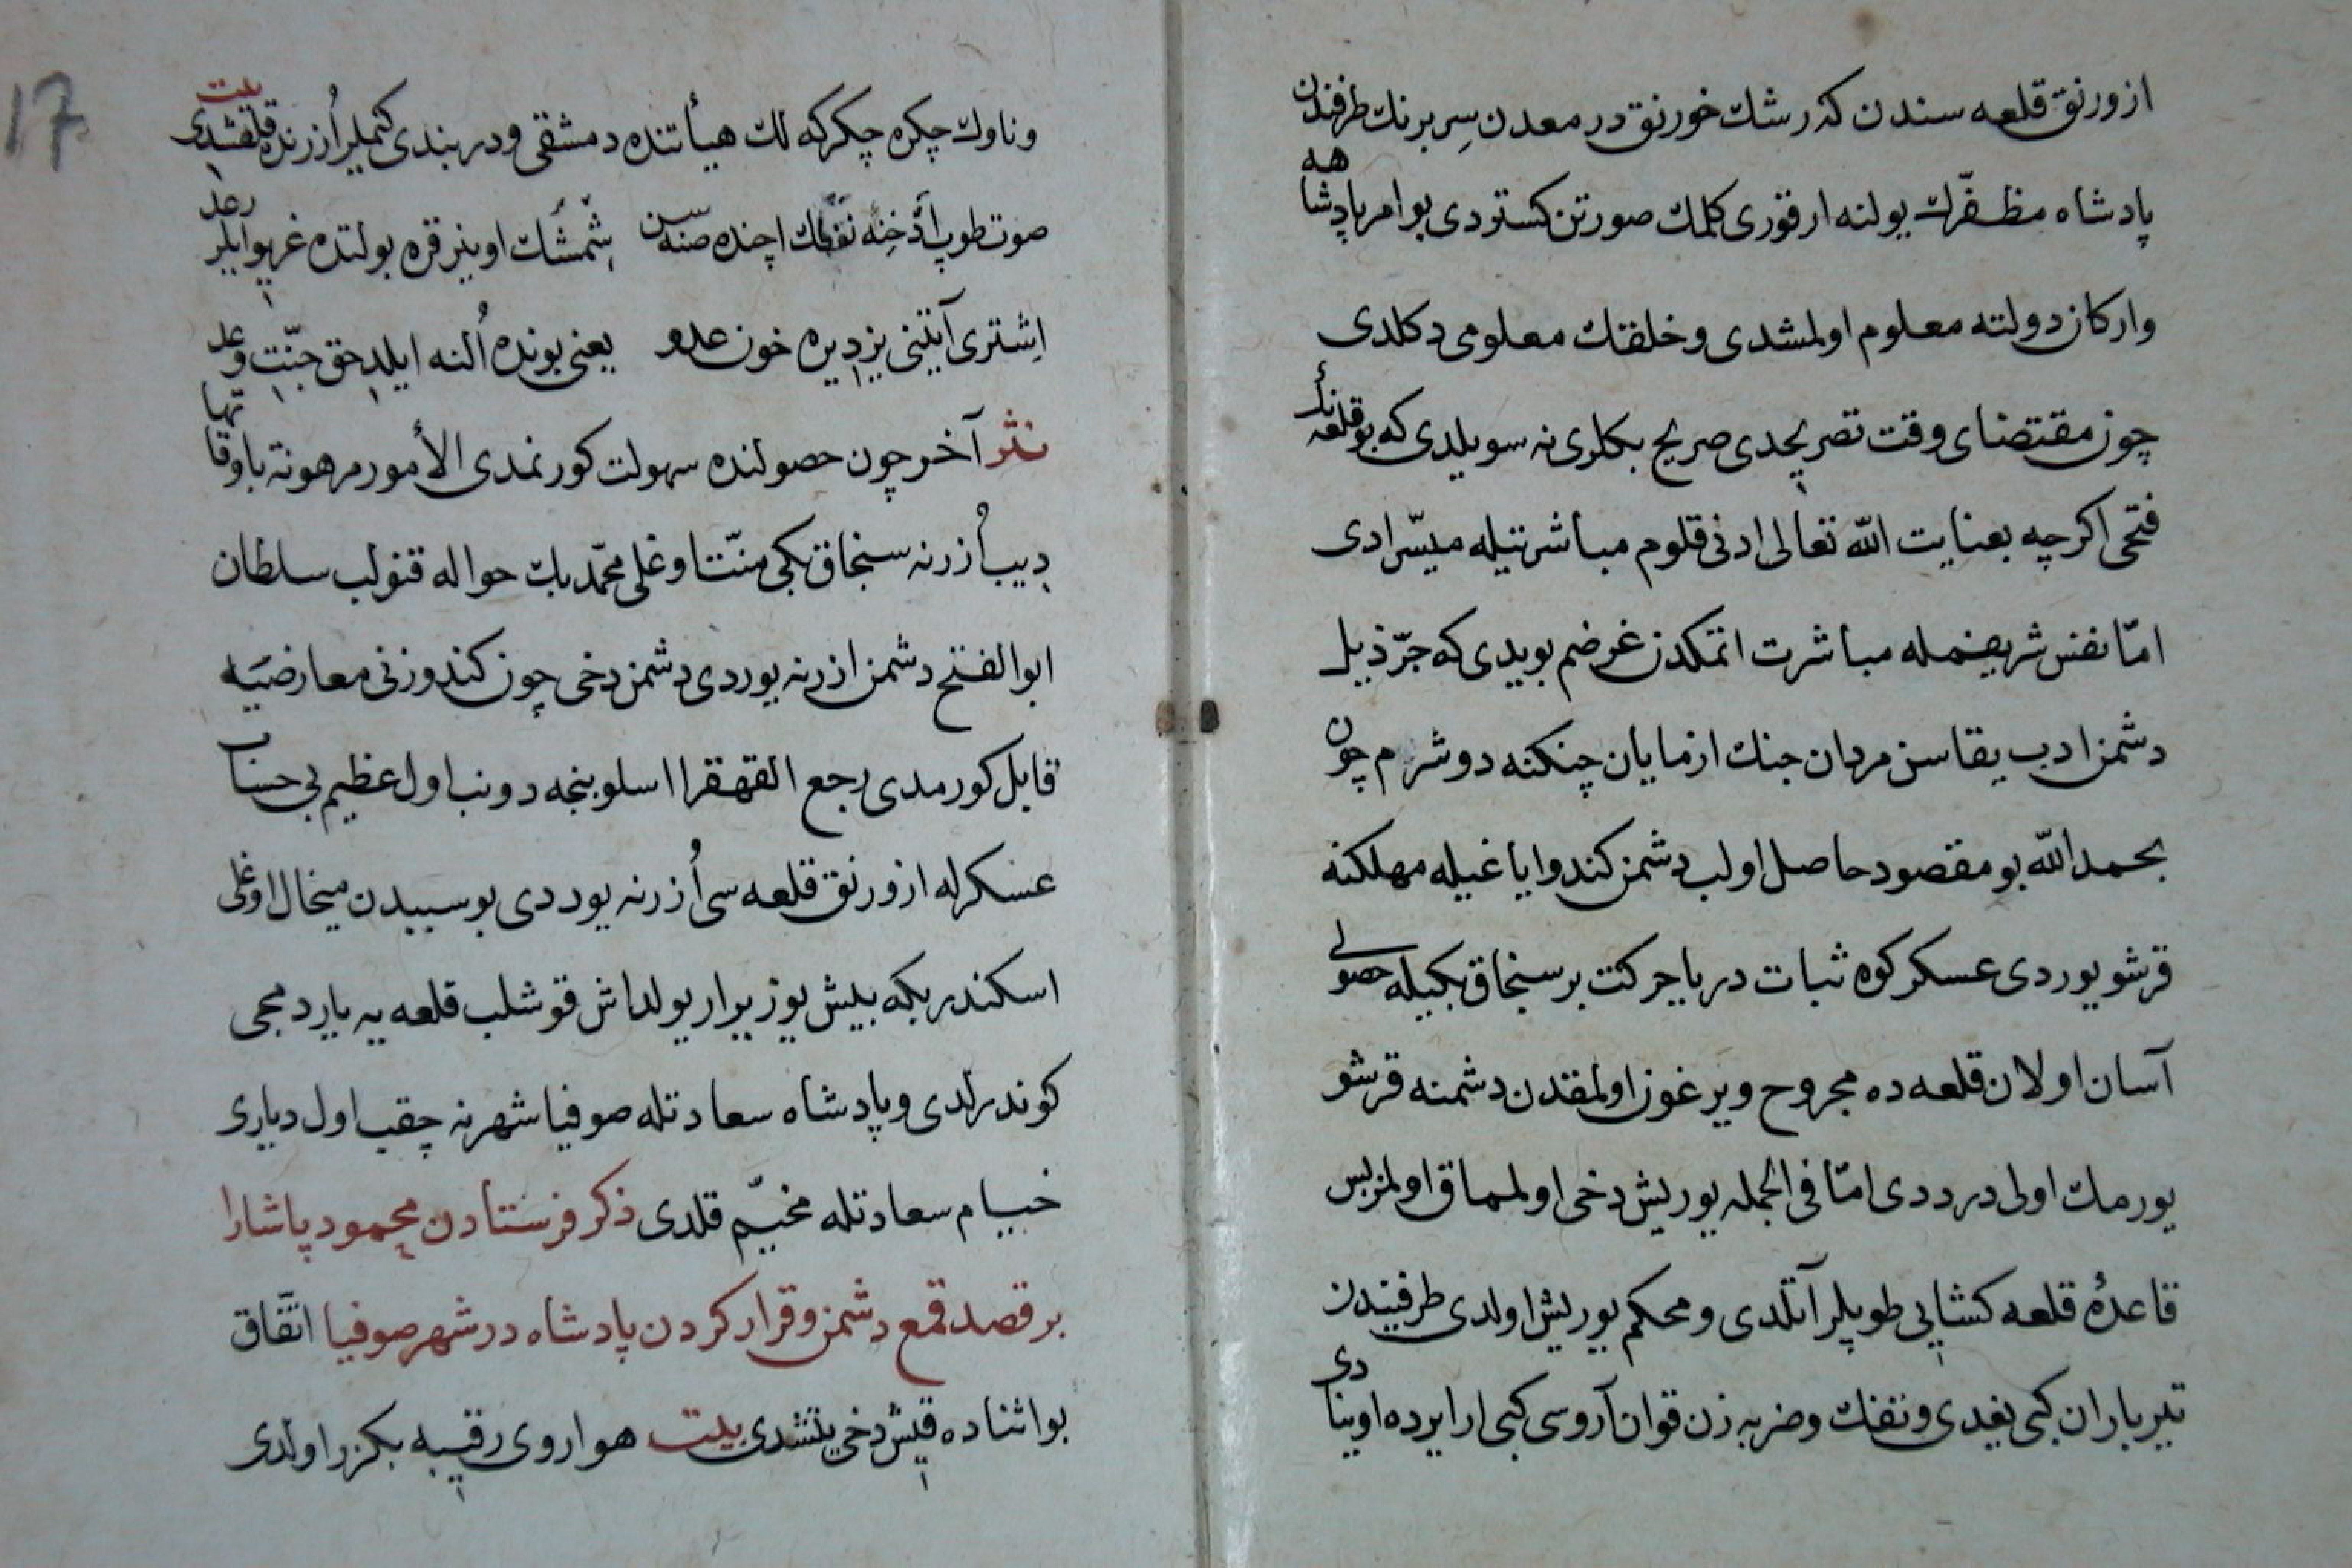 ازورنق قلعه سندن كه رشك خورنق در معدن سیم برنك طرفندن
پادشاه مظفّرك یولنه ارقوری كلمك صورتن كستردی بو امر پادشاهه
واركان دولته معلوم اولمشدی وخلقك معلومی دكلدی
چون مقتضای وقت تصریحدی صریح بكلرینه سویلدی كه بو قلعه نك
فتحی اكرچه بعنایت الله تعالی ادنی قلوم مباشرتیله میسّرادی
امّا نفس شریفمله مباشرت اتمكدن غرضم بویدی كه جرّ ذیل
دشمن ادب یقاسن مردان جنك ازمایان چنكنه دوشرم چون
بحمدالله بو مقصود حاصل اولب دشمن كندو ایاغیله مهلكنه
قرشو یوردی عسكر كوه ثبات دریا حركت بر سنجاق بكیله حصولی
آسان اولان قلعه ده مجروح ویرغون اولمقدن دشمنه قرشو
یورمك اولی در ددی امّا فی الجمله یوریش دخی اولمماق اولمز بس
قاعدهٔ قلعه كشایی طوپلر آتلدی و محكم یوریش اولدی طرفیندن
تیر باران كبی یغدی وتفنك وضربه زن قوان آروسی كبی ارایرده اوینادی
وناوك چكره چكركه لك هیأتنده دمشقی ودربندی كتملر اُزرنده قلقشدی بیت
صوت طوپ ادّخنه تفنك اچنده صنه سن شمشك اوینر قره بولتده غریو ایلر رعد
اِشتری آیتنی یزدیره خون عدو یعنی بونده اُلنه ایلدی حق جنّت وعد
نثر آخر چون حصولنده سهولت كورنمدی الأمور مرهونة باوقاتها
دیب اُزرنه سنجاق بكی منتشا اوغلی محمّد بك حواله قنولب سلطان
ابوالفتح دشمن ازرنه یوردی دشمن دخی چون كندوزنی معارضیه
قابل كورمدی رجع القهقرا اسلوبنجه دونب اول عظیم بی حساب
عسكرله ازورنق قلعه سی اُزرنه یوردی بو سببدن میخال اوغلی
اسكندر بكه بیش یوز یرار یولداش قوشلب قلعه یه یاردمجی
كوندرلدی وپادشاه سعادتله صوفیا شهرنه چقب اول دیاری
خیام سعادتله مخیّم قلدی ذكر فرستادن محمود پاشارا
بر قصد قمع دشمن وقرار كردن پادشاه در شهر صوفیا اتّفاق
بو اثناده قیش دخی یتشدی بیت هوا روی رقیبه بكزر اولدی